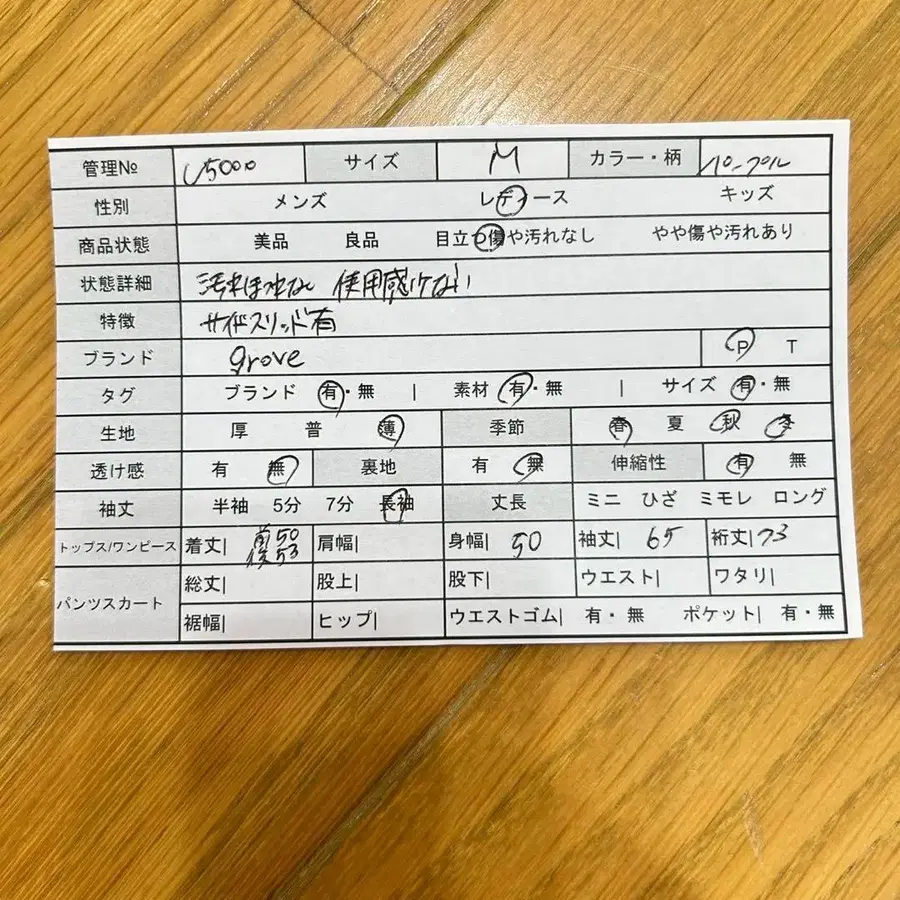 管理№ し5000 サイズ M カラー・柄 パープル
性別 メンズ レディース キッズ
商品状態 美品 良品 目立つ傷や汚れなし やや傷や汚れあり
状態詳細 汚れほつれなし 使用感けない
特徴 サイドスリッド有
ブランド grove P T
タグ ブランド 有・無 | 素材 有・無 | サイズ 有・無
生地 厚 普 薄 季節 春 夏 秋 冬
透け感 有 無 裏地 有 無 伸縮性 有 無
袖丈 半袖 5分 7分 長袖 丈長 ミニ ひざ ミモレ ロング
トップス/ワンピース 着丈| 前50 後53 肩幅| 身幅| 50 袖丈| 65 裄丈| 73
パンツスカート 総丈| 股上| 股下| ウエスト| ワタリ|
裾幅| ヒップ| ウエストゴム| 有・無 ポケット| 有・無